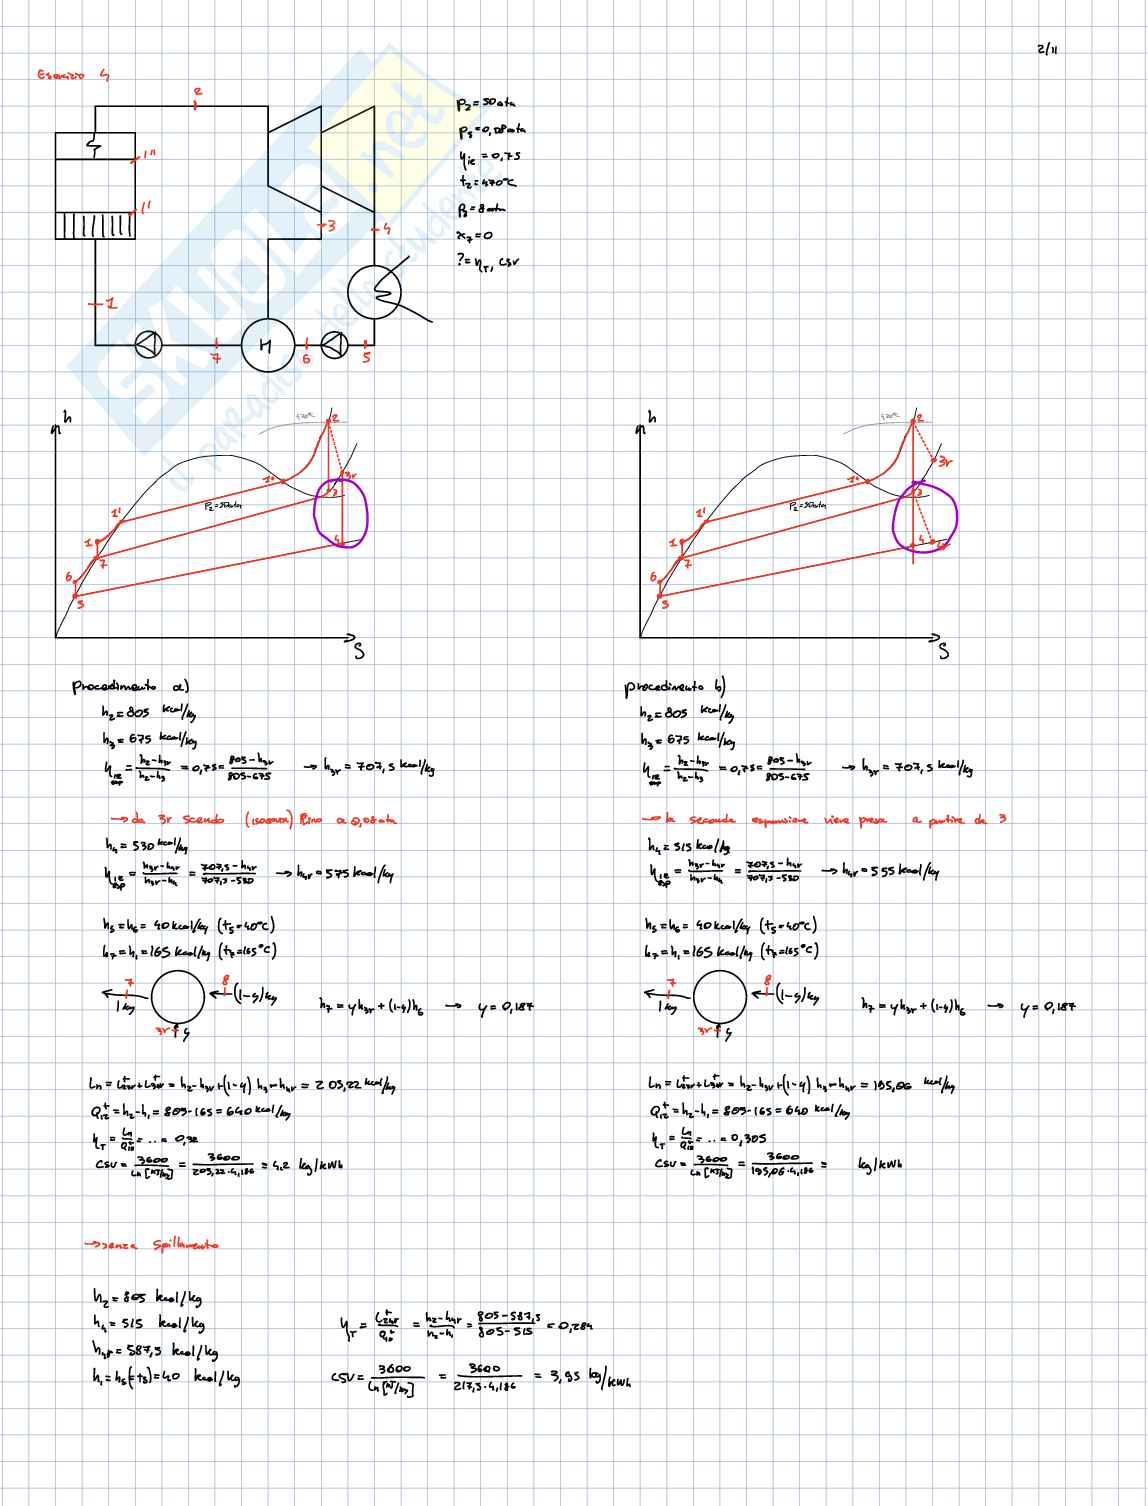 2/11
Esercizio 4
2
P₂ = 50 ata
P₅ = 0,08 ata
1''
η_ie = 0,75
t₂ = 470°C
1'
P₃ = 8 ata
3
4
x₇ = 0
? = η_T, csv
1
M
7
6
5
SKUOLA.net
h
470°C
2
1''
3r
3
1'
P₂=50ata
1
4
7
6
5
S
h
470°C
2
1''
3r
3
1'
P₂=50ata
1
4
7
6
5
S
Procedimento a)
h₂ = 805 kcal/kg
h₃ = 675 kcal/kg
η_ie esp = (h₂-h₃r)/(h₂-h₃) = 0,75 = (805-h₃r)/(805-675) → h₃r = 707,5 kcal/kg
→ da 3r scendo (isoentr) fino a 0,08 ata
h₄ = 530 kcal/kg
η_ie esp = (h₃r-h₄r)/(h₃r-h₄) = (707,5-h₄r)/(707,5-530) → h₄r = 575 kcal/kg
h₅ = h₆ = 40 kcal/kg (t₅=40°C)
h₇ = h₁ = 165 kcal/kg (t₇=165°C)
7
8
1 kg
(1-y)kg
3r
y
h₇ = y h₃r + (1-y)h₆ → y = 0,187
Ln = L⁺₂₃r + L⁺₃r₄r = h₂-h₃r+(1-y) h₃-h₄r = 205,22 kcal/kg
Q⁺₁₂ = h₂-h₁ = 805-165 = 640 kcal/kg
η_T = Ln/Q⁺₁₂ = .. = 0,32
CSV = 3600/(Ln [kJ/kg]) = 3600/(205,22·4,186) = 4,2 kg/kWh
procedimento b)
h₂ = 805 kcal/kg
h₃ = 675 kcal/kg
η_ie esp = (h₂-h₃r)/(h₂-h₃) = 0,75 = (805-h₃r)/(805-675) → h₃r = 707,5 kcal/kg
→ la seconda espansione viene presa a partire da 3
h₄ = 515 kcal/kg
η_ie esp = (h₃r-h₄r)/(h₃r-h₄) = (707,5-h₄r)/(707,5-530) → h₄r = 555 kcal/kg
h₅ = h₆ = 40 kcal/kg (t₅=40°C)
h₇ = h₁ = 165 kcal/kg (t₇=165°C)
7
8
1 kg
(1-y)kg
3r
y
h₇ = y h₃r + (1-y)h₆ → y = 0,187
Ln = L⁺₂₃r + L⁺₃r₄r = h₂-h₃r+(1-y) h₃-h₄r = 195,06 kcal/kg
Q⁺₁₂ = h₂-h₁ = 805-165 = 640 kcal/kg
η_T = Ln/Q⁺₁₂ = .. = 0,305
CSV = 3600/(Ln [kJ/kg]) = 3600/(195,06·4,186) = kg/kWh
→ senza spillamento
h₂ = 805 kcal/kg
h₄ = 515 kcal/kg
h₄r = 587,5 kcal/kg
h₁ = h₅(=t₅) = 40 kcal/kg
η_T = L⁺₂₄r/Q⁺₁₂ = (h₂-h₄r)/(h₂-h₁) = (805-587,5)/(805-515) = 0,284
CSV = 3600/(Ln [kJ/kg]) = 3600/(217,5·4,186) = 3,95 kg/kWh